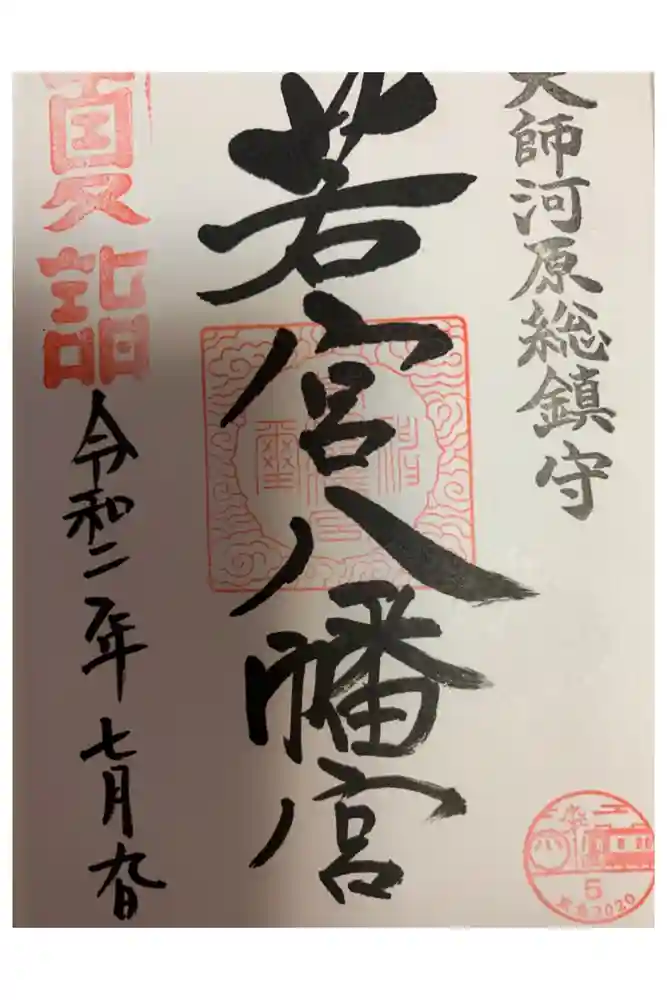 大師河原総鎮守
若宮八幡宮
夏詣
令和二年七月九日
5
2020